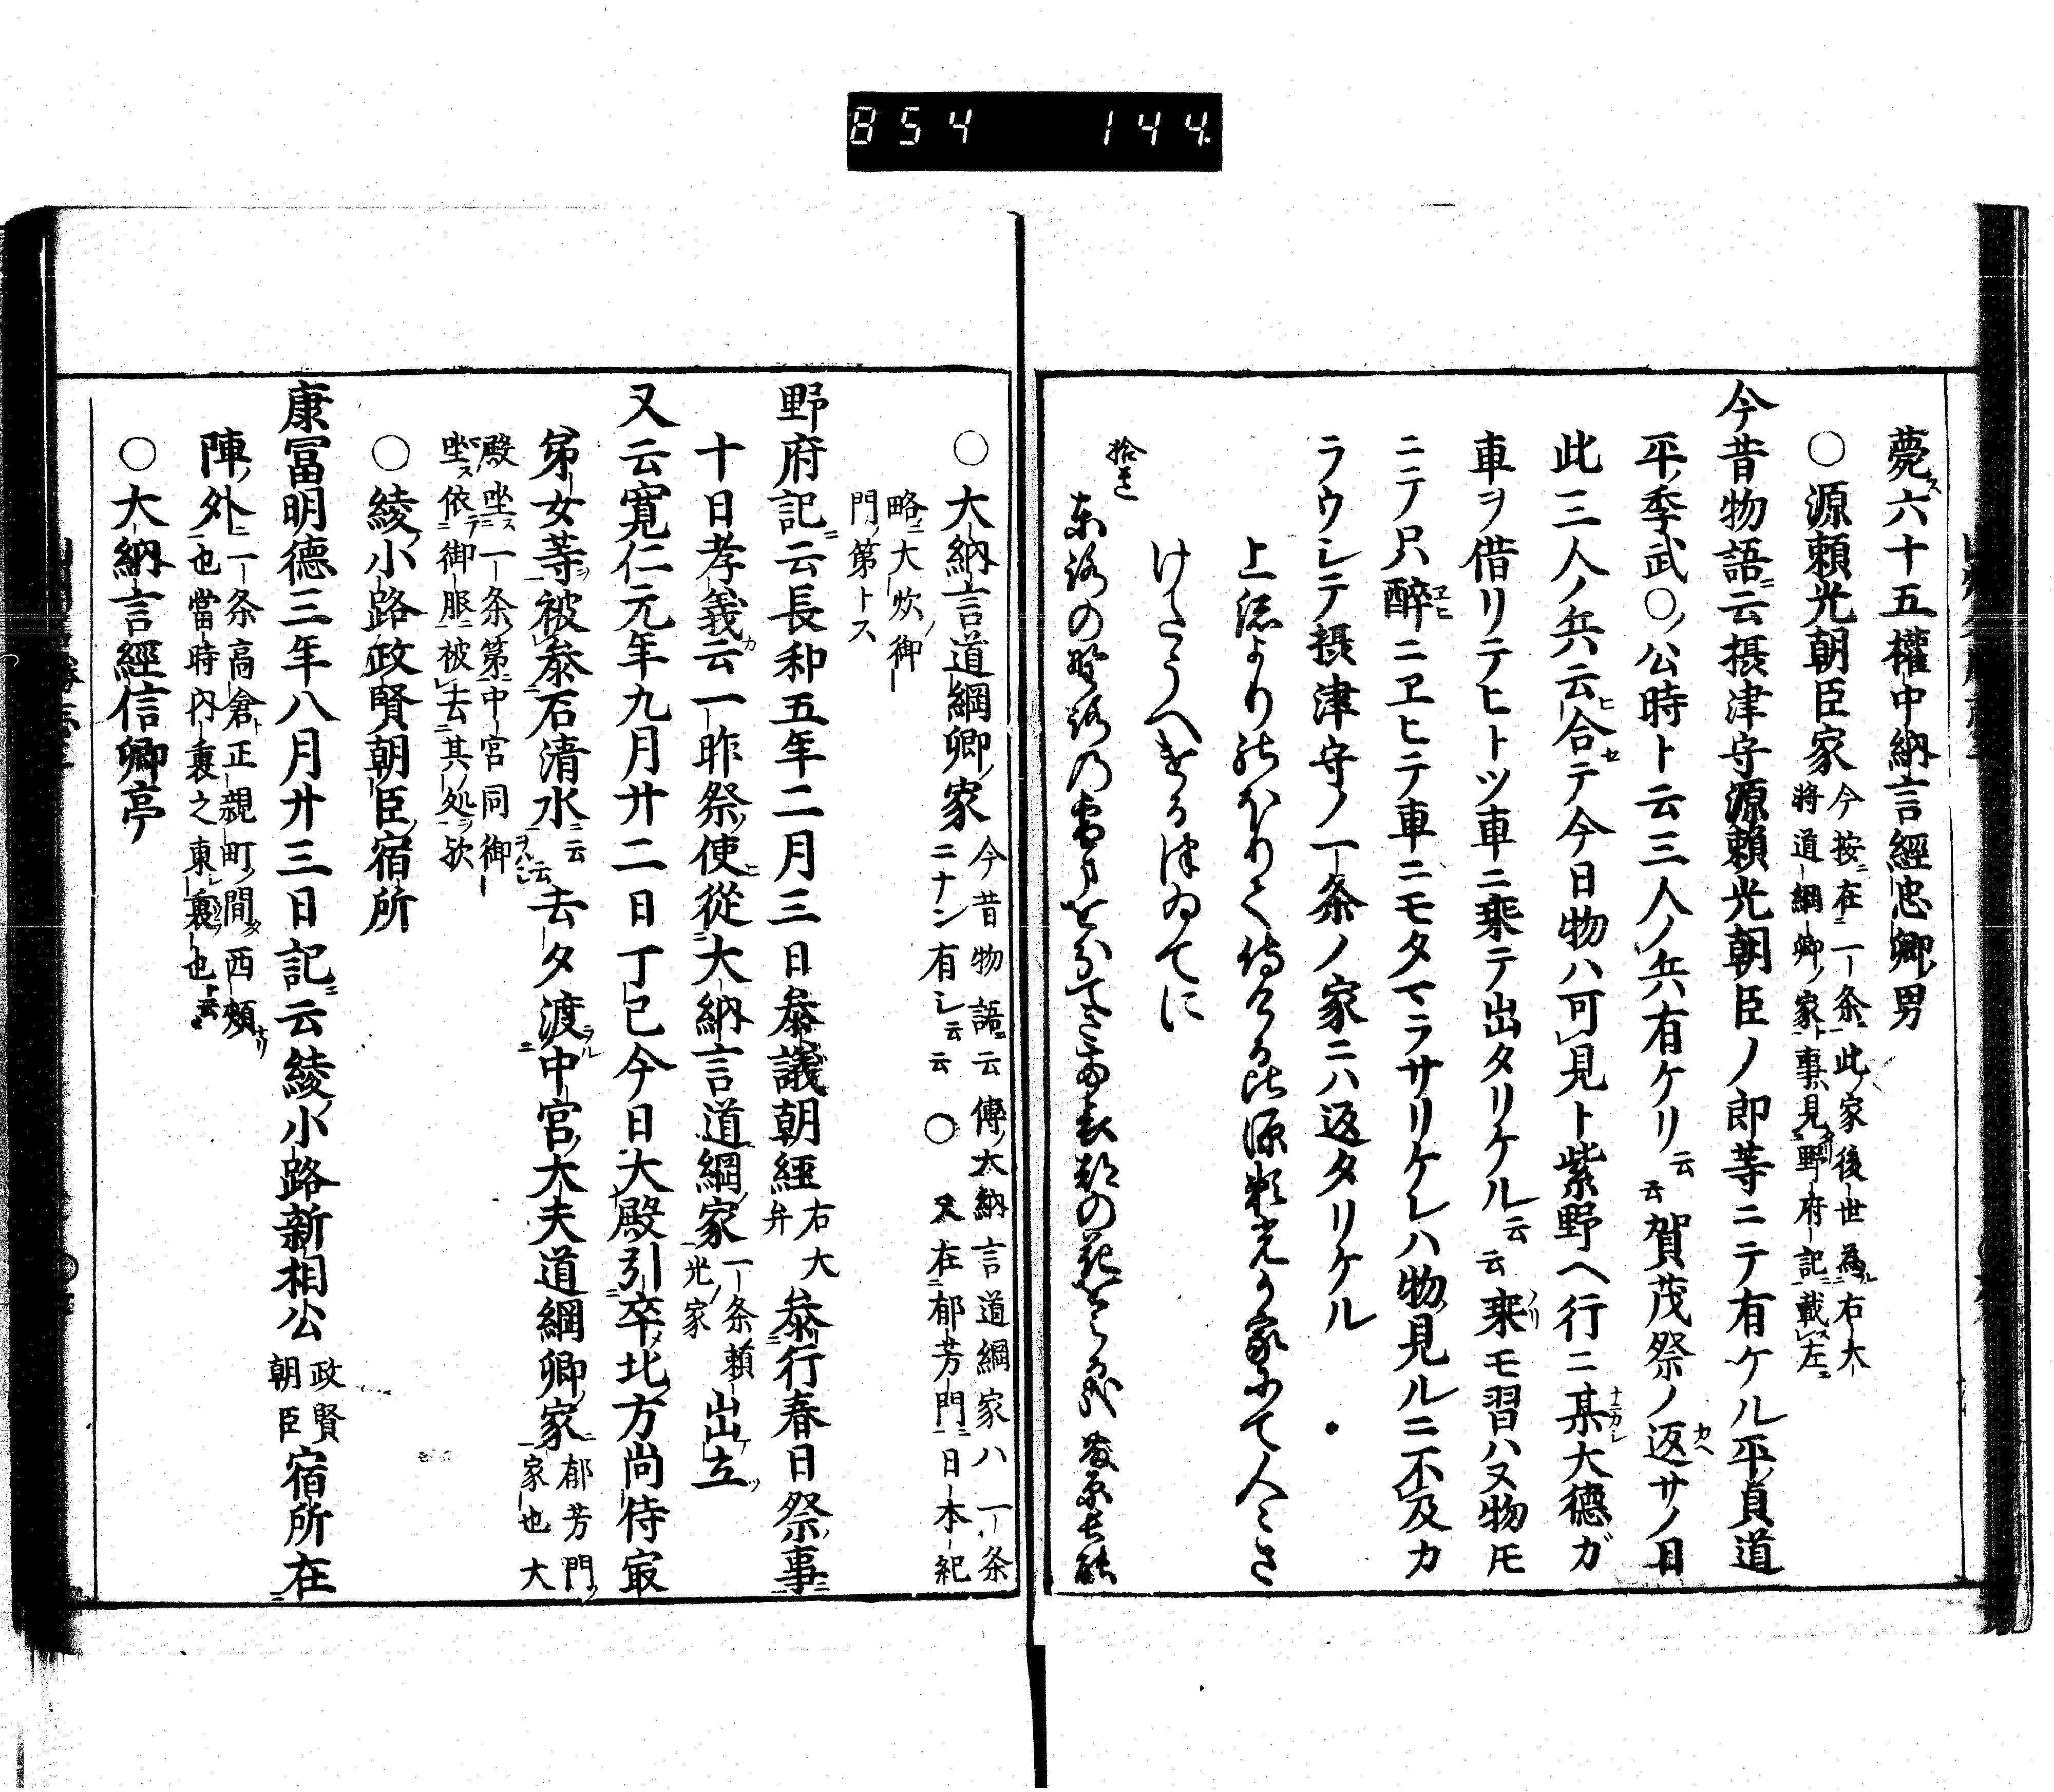 854 144
薨ス六十五權中納言經忠卿ノ男
○源頼光朝臣家
今按ニ在ニ一条ニ此ノ家後世為ル右大
将道綱卿ノ家ト事見野府記ニ載ス左ニ
今昔物語ニ云摂津守源頼光朝臣ノ郎等ニテ有ケル平ノ貞道
平ノ季武○ノ公時ト云三人ノ兵有ケリ云云賀茂祭ノ返カヘサノ日
此三人ノ兵云ヒ合セテ今日物ハ可見ト紫野ヘ行ニ某ナニカシ大德ガ
車ヲ借リテヒトツ車ニ乗テ出タリケル云云乗ノリモ習ハヌ物モ
ニテ只醉ヱヒニヱヒテ車ニモタマラサリケレハ物見ルニ不及カ
ラウシテ摂津守ノ一条ノ家ニハ返タリケル
上総よりのほりて侍りける比源頼光か家にて人々さ
けたうへける次ゐてに
拾遺
東路の野路の雪まを分てきて哀都の花をみる哉 藤原長能
○大納言道綱卿ノ家
今昔物語ニ云傅ノ大納言道綱家ハ一条
ニナン有シ云云 ○又在郁芳門ニ日本紀
略ニ大炊御
門ノ第トス
野府記ニ云長和五年二月三日参議朝經右大弁参行春日祭ノ事
十日孝義カ云一昨祭ノ使ヒ從大納言道綱ノ家一条頼光ノ家出立
又云寛仁元年九月廿二日丁巳今日大殿引卒北方尚侍㝡
第女等被参石清水ニ云云去夕渡ラル中宮ノ大夫道綱卿ノ家ニ郁芳門ノ家也大
殿坐ス一条ノ第ニ中宮同御
坐ス依テ御服ニ被去其ノ処ヲ歟
○綾ノ小路政賢朝臣ノ宿所
康冨明德三年八月廿三日記ニ云綾ノ小路新相公政賢朝臣宿所在
陣ノ外ニ一条高倉ト正親町ノ間タ西頬ナリ
也當時内裏之東裏也ト云云
○大納言經信卿亭